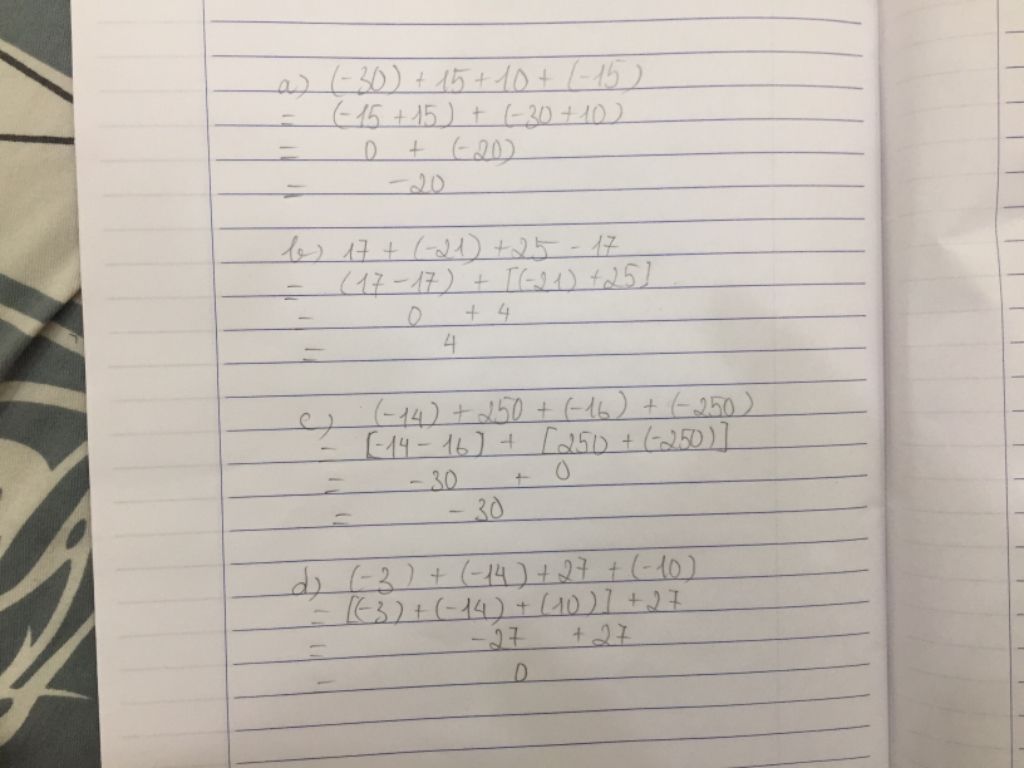 a) (-30) + 15 + 10 + (-15)
= (-15 + 15) + (-30 + 10)
= 0 + (-20)
= -20
b) 17 + (-21) + 25 - 17
= (17 - 17) + [(-21) + 25]
= 0 + 4
= 4
c) (-14) + 250 + (-16) + (-250)
= [-14 - 16] + [250 + (-250)]
= -30 + 0
= -30
d) (-3) + (-14) + 27 + (-10)
= [(-3) + (-14) + (10)] + 27
= -27 + 27
= 0